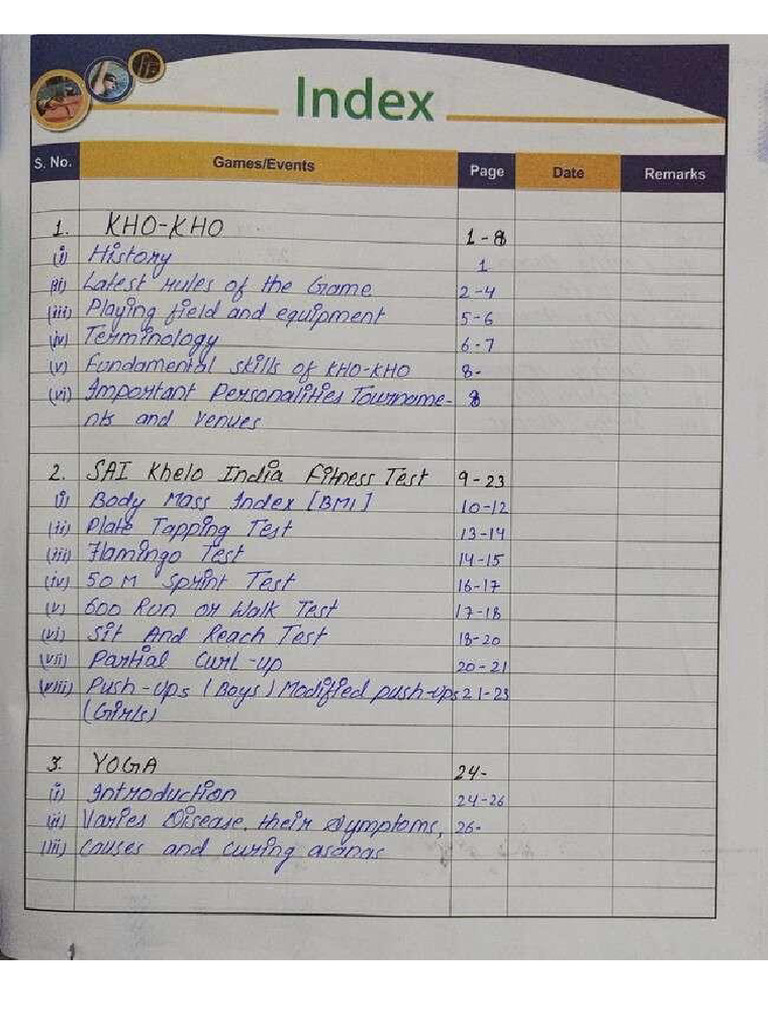 Index
S. No. Games/Events Page Date Remarks
1. KHO-KHO 1-8
(i) History 1
(ii) Latest rules of the Game 2-4
(iii) Playing field and equipment 5-6
(iv) Terminology 6-7
(v) Fundamental skills of KHO-KHO 8-
(vi) Important Personalities Tourname- 8
nts and Venues
2. SAI Khelo India Fitness Test 9-23
(i) Body Mass Index [BMI] 10-12
(ii) Plate Tapping Test 13-14
(iii) Flamingo Test 14-15
(iv) 50 M Sprint Test 16-17
(v) 600 Run or Walk Test 17-18
(vi) Sit And Reach Test 18-20
(vii) Partial Curl-up 20-21
(viii) Push-ups (Boys) Modified push-ups 21-23
(Girls)
3. YOGA 24-
(i) Introduction 24-26
(ii) Varies Disease, their Symptoms, 26-
(iii) Causes and curing asanas